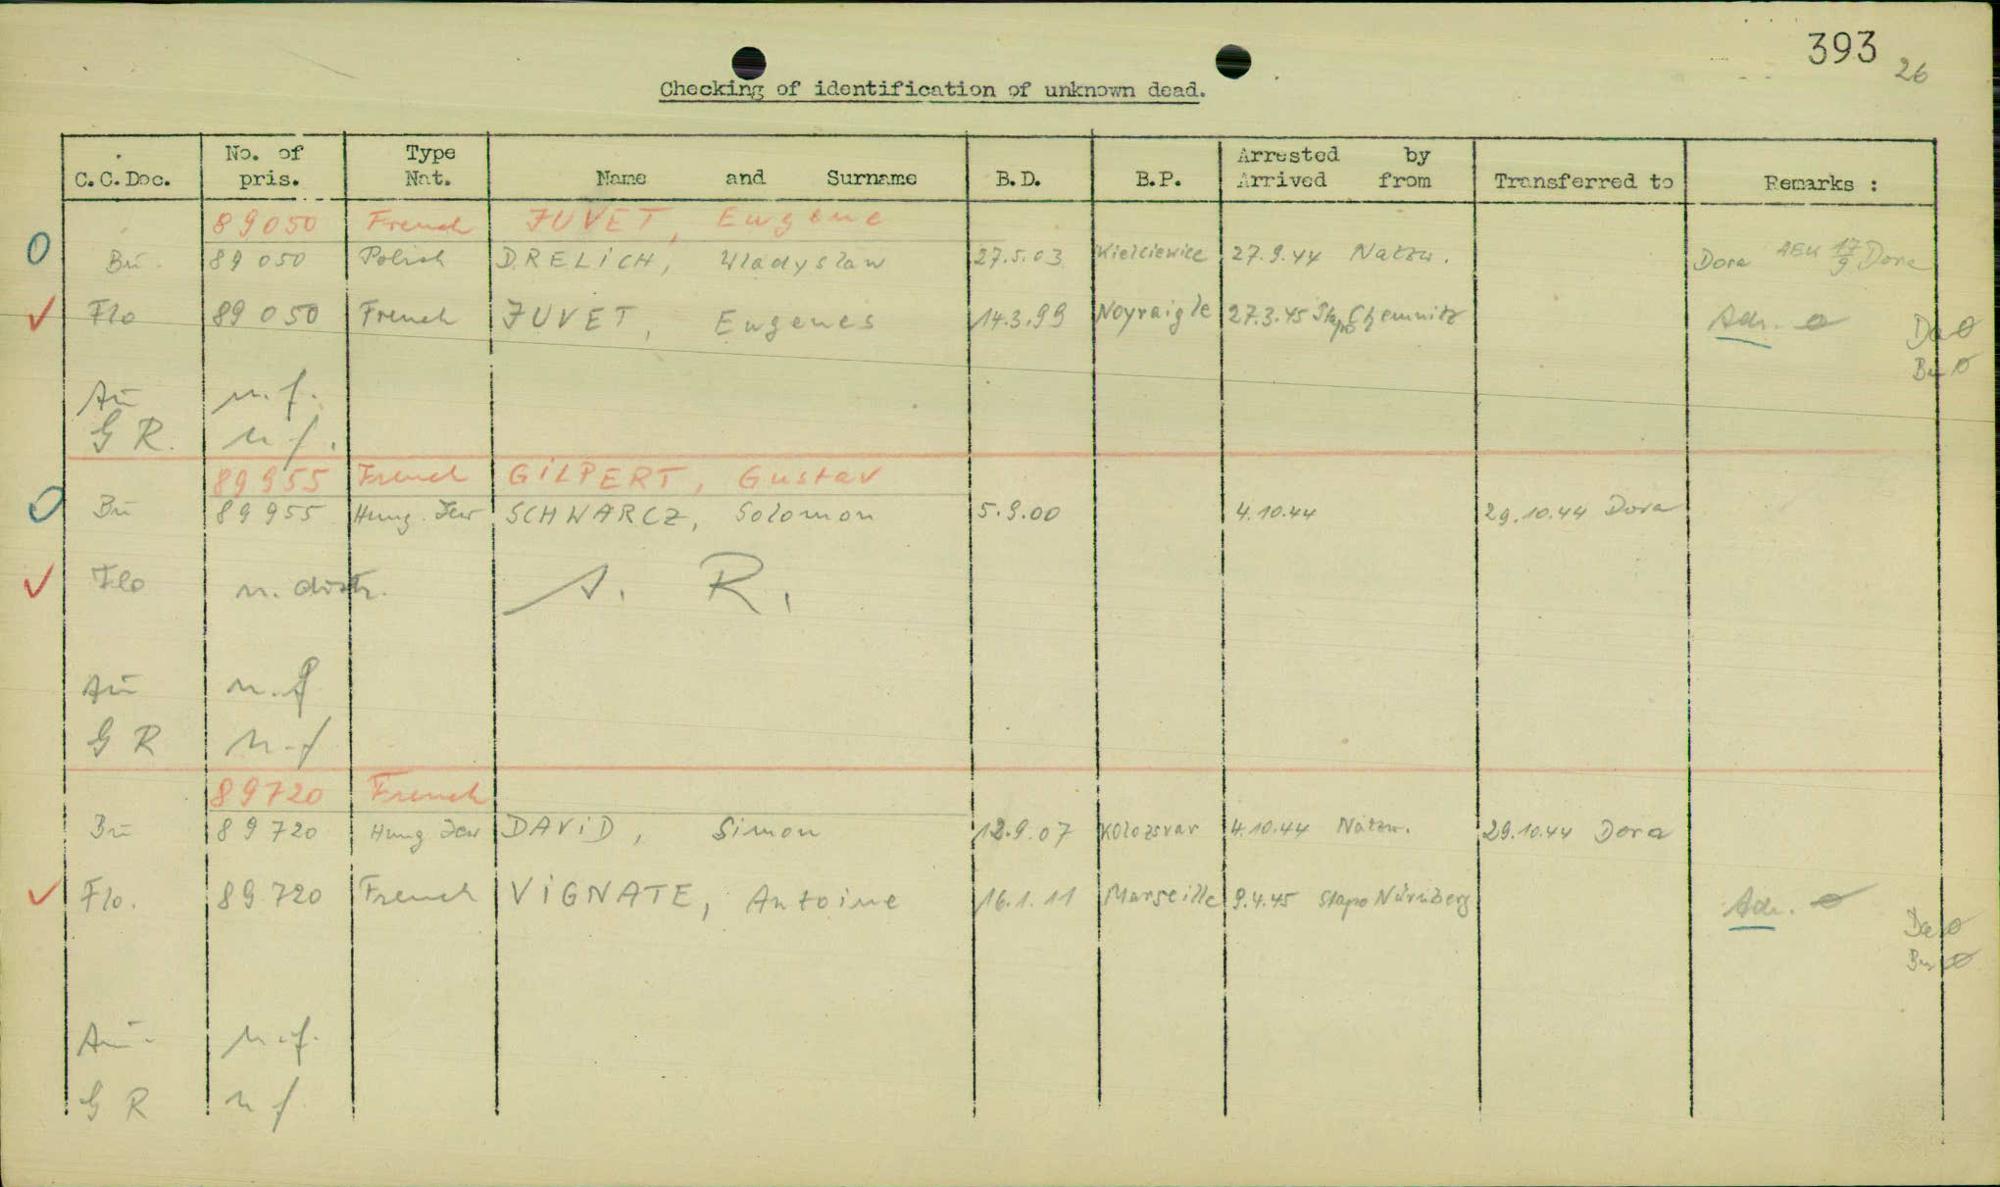 393
26
Checking of identification of unknown dead.
C.C.Doc. No. of pris. Type Nat. Name and Surname B.D. B.P. Arrested by Arrived from Transferred to Remarks :
89050 French JUVET, Eugene
Bu. 89050 Polish DRELICH, Wladyslaw 27.5.03 27.9.44 Natzw. Dora 17/9 Dora
Flo 89050 French JUVET, Eugenes 14.3.99 Noyraigle 27.3.45 Stapo Chemnitz Adr. Da
Bu
Au n.f.
G R. n f.
89955 French GILPERT, Gustav
Bu 89955 Hung. Jew SCHWARCZ, Solomon 5.9.00 4.10.44 29.10.44 Dora
Flo n. distr. A. R.
Au n.f
G R n-f
89720 French
Bu 89720 Hung Jew DAViD, Simon 12.9.07 Kolozsvar 4.10.44 Natzw. 29.10.44 Dora
Flo. 89720 French ViGNATE, Antoine 16.1.11 Marseille 9.4.45 Stapo Nürnberg Adr. Da
Bu
Au. n.f.
G R n f